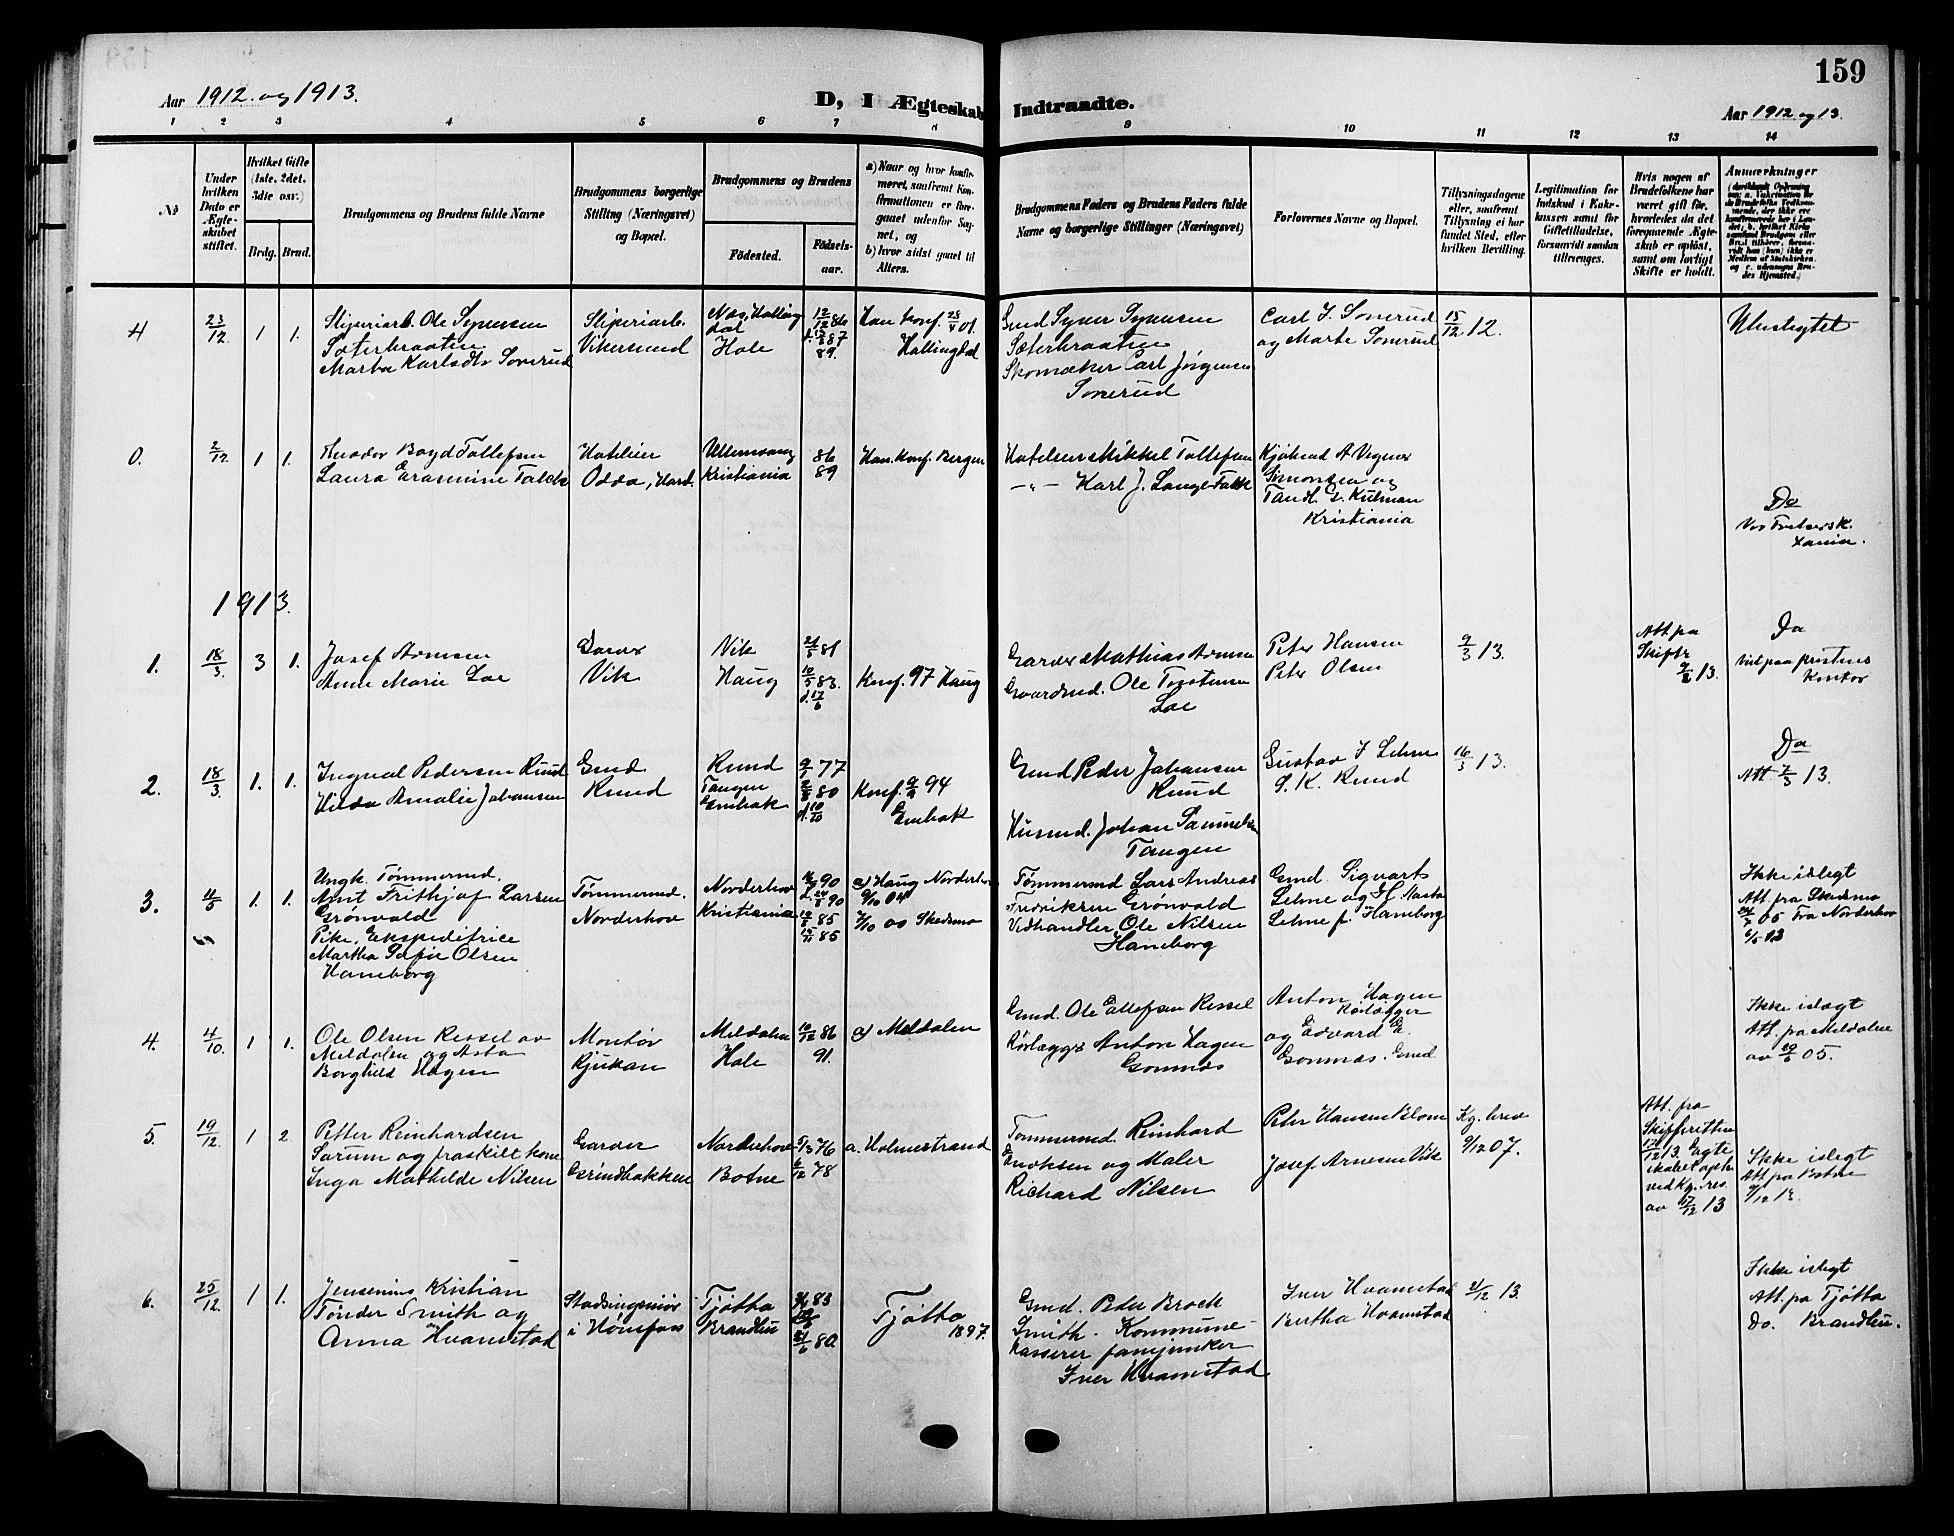 159
Aar 1912. og 1913.
D, I Ægteskab Indtraadte.
Aar 1912 og 13.
1 2 3 4 5 6 7 8 9 10 11 12 13 14
No
Under hvilken Dato er Ægteskabet stiftet.
Hvilket Gifte (1ste, 2det, 3die osv.)
Brdg. Brud.
Brudgommens og Brudens fulde Navne
Brudgommens borgerlige Stilling (Næringsvei) og Bopæl.
Brudgommens og Brudens
Fødested.
Fødselsaar.
a) Naar og hvor konfirmeret, saafremt Konfirmationen er foregaaet udenfor Sognet, og
b) hvor sidst gaaet til Alters.
Brudgommens Faders og Brudens Faders fulde Navne og borgerlige Stillinger (Næringsvei)
Forlovernes Navne og Bopæl.
Tillysningsdagene eller, saafremt Tillysning ei har fundet Sted, efter hvilken Bevilling.
Legitimation for Indskud i Enkekassen samt for Giftetilladelse, forsaavidt saadan tiltrænges.
Hvis nogen af Brudefolkene har været gift før, hvorledes da det foregaaende Ægteskab er opløst, samt om lovligt Skifte er holdt.
Anmærkninger
4 23/12 1 1.
Sliperiarb. Ole Syversen
Sæterbraaten
Marta Karlsdtr Sonerud
Sliperiarb.
Vikersund
Næs, Halling
dal
Hole
12/12 86
87
89.
Han konf. 01.
Hallingdal
Gmd Syver Syversen
Sæterbraaten
Skomaker Carl Jørgensen
Sonerud
Carl J. Sonerud
og Marte Sonerud
15/12 12.
Ubeslegtet
0. 2/12. 1 1.
Boyd Tollefsen
Laura Erasmine Falck
Hoteleier
Odda, Hard.
Ullensvang
Kristiania
86
89
Han. Konf. Bergen
Hoteleier Mikkel Tollefsen
-"- Karl J. Lange Falck
Kjøbmd A Vegner
Simonsen og
Tandl. Kulman
Kristiania
Do
Vor Frelsersk.
Xania.
1913.
1. 18/3. 3 1.
Josef Arnesen
Anne Marie Loe
Garver
Vik
Vik
Haug
81
10/5 83.
d. 17/6
Konf. 97 Haug
Garver Mathias Arnesen
Gaardmd. Ole Torstensen
Loe
Peter Hansen
Peter Olsen
9/3 13.
Att. fra
Skiftr
13.
Do
Viet paa prestens
Kontor
2. 18/3. 1. 1.
Ingval Pedersen Rund
Hilda Amalie Johansen
Gmd
Rund
Rund
Tangen
Enebak
77
80
d. 10/10
Konf. 94
Enebak
Gmd Peder Johansen
Rund
Husmd. Johan Samuelsen
Tangen
Gustav J Lehne
S. K. Rund
16/3 13.
Do
Att. 7/3 13.
3. 4/5 1. 1.
Ungk. Tømmermd.
Arnt Frithjof Larsen
Grønvold
Pike, Ekspeditrice
Martha Sofie Olsen
Haneborg
Tømmermd.
Norderhov
Norderhov
Kristiania
90
90
85
85
a) Haug Norderhov
9/10 04
7/10 00 Skedsmo
Tømmermd Lars Andreas
Fredriksen Grønvold
Vedhandler Ole Nilsen
Haneborg
Gmd. Sigvart
Lehne og
Lehne f. Haneborg
Ikke islegt
Att. fra Skedsmo
05 Fra Norderhov
13
4. 4/10. 1 1.
Ole Olsen Ressel av
Meldalen og Asta
Borghild Hagen
Montør
Rjukan
Meldalen
Hole
10/12 86
91.
a) Meldalen
Gmd. Ole Ellefsen Ressel
Rørlægger Anton Hagen
Gomnæs
Anton Hagen
Rørlægger
og Edvard E.
Gomnæs. Gmd.
Ikke islægt
Att. fra Meldalen
av 05.
5. 19/12. 1 2.
Petter Reinhardsen
Sørum og fraskilt kone
Inga Mathilde Nilsen
Garver
Grindbakken
Norderhov
Botne
76
78
a. Holmestrand
Tømmermd. Reinhard
Enoksen og Maler
Richard Nilsen
Peter Hansen Blom
Josef Arnesen Vik
Kg. brev
9/12 07.
Att. fra
Skifteretten
13. Egte
skabet opl.
ved Kg. res.
av 17/12 13
Ikke islegt
Att. fra Botne
6. 25/12. 1 1.
Jensenius Kristian
Tønder Smith og
Anna Hvamstad
Stadsingeniør
i Hønefoss
Tjøtta
Brandbu
83
80
Tjøtta
1897.
Gmd. Peter Brock
Smith. Kommune-
kasserer fanejunker
Iver Hvamstad
Iver Hvamstad
Bertha Hvamstad
21/12 13.
Ikke islegt
Att. fra Tjøtta
Do. Brandbu.